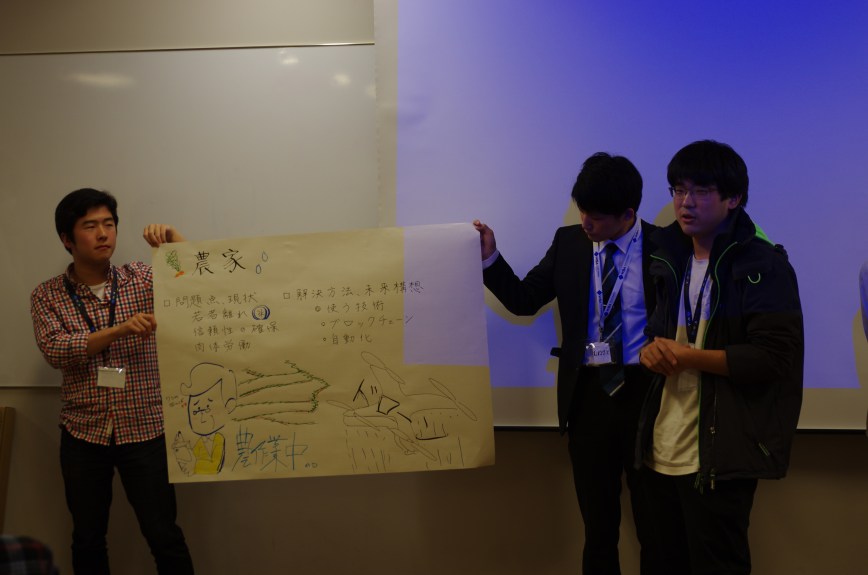 農家
□ 問題点、現状
若者離れ
信頼性の確保
肉体労働
□ 解決方法、未来構想
使う技術
ブロックチェーン
自動化
農作業中